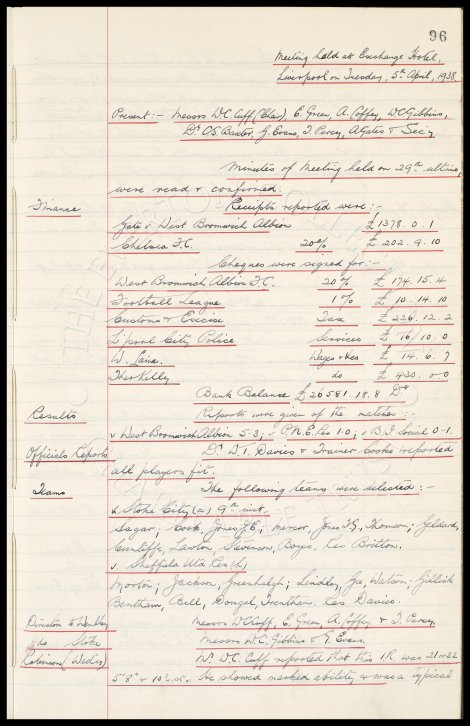 96
Meeting held at Exchange Hotel,
Liverpool on Tuesday, 5th April, 1938
Present :- Messrs W.C. Cuff (Chair), E. Green, A. Coffey, W.C. Gibbins,
Dr C.S. Baxter, G. Evans, T. Percy, A. Gates & Secy
Minutes of Meeting held on 29th ultimo,
were read & confirmed.
Finance Receipts reported were :-
Gate v West Bromwich Albion £1378. 0. 1
Chelsea F.C. 20% £ 202. 9. 10
Cheques were signed for :-
West Bromwich Albion F.C. 20% £ 174. 15. 4
Football League 1% £ 10. 14. 10
Customs & Excise Tax £ 226. 12. 2
L'pool City Police Services £ 16/10. 0
W. Lane. Wages &c £ 14. 6. 7
Theo Kelly do £ 430. 0-0
Bank Balance £20581. 18. 8 Dr
Results Reports were given of the matches :-
v West Bromwich Albion 5-3; v P.N.E. Res 1-0; v B.I. Social 0-1.
Officials Reports Dr D.I. Davies & Trainer Cooke reported
all players fit.
Teams The following teams were selected :-
v Stoke City (a) 9th inst.
Sagar; Cook, Jones J.E; Mercer, Jones T.G, Thomson; Geldard,
Cunliffe, Lawton, Stevenson, Boyes. Res Britton.
v. Sheffield Utd Res (h)
Morton; Jackson, Greenhalgh; Lindley, Gee, Watson; Gillick
Bentham, Bell, Dougal, Trentham. Res Davies.
Directors to Wembley Messrs W.C. Cuff, E. Green, A. Coffey & T. Percy.
do Stoke Messrs W.C. Gibbins & G. Evans.
Robinson (Wedn.) Mr W.C. Cuff reported that this I.R. was 21 or 22
5'8" & 10½ st. He showed marked ability & was a typical